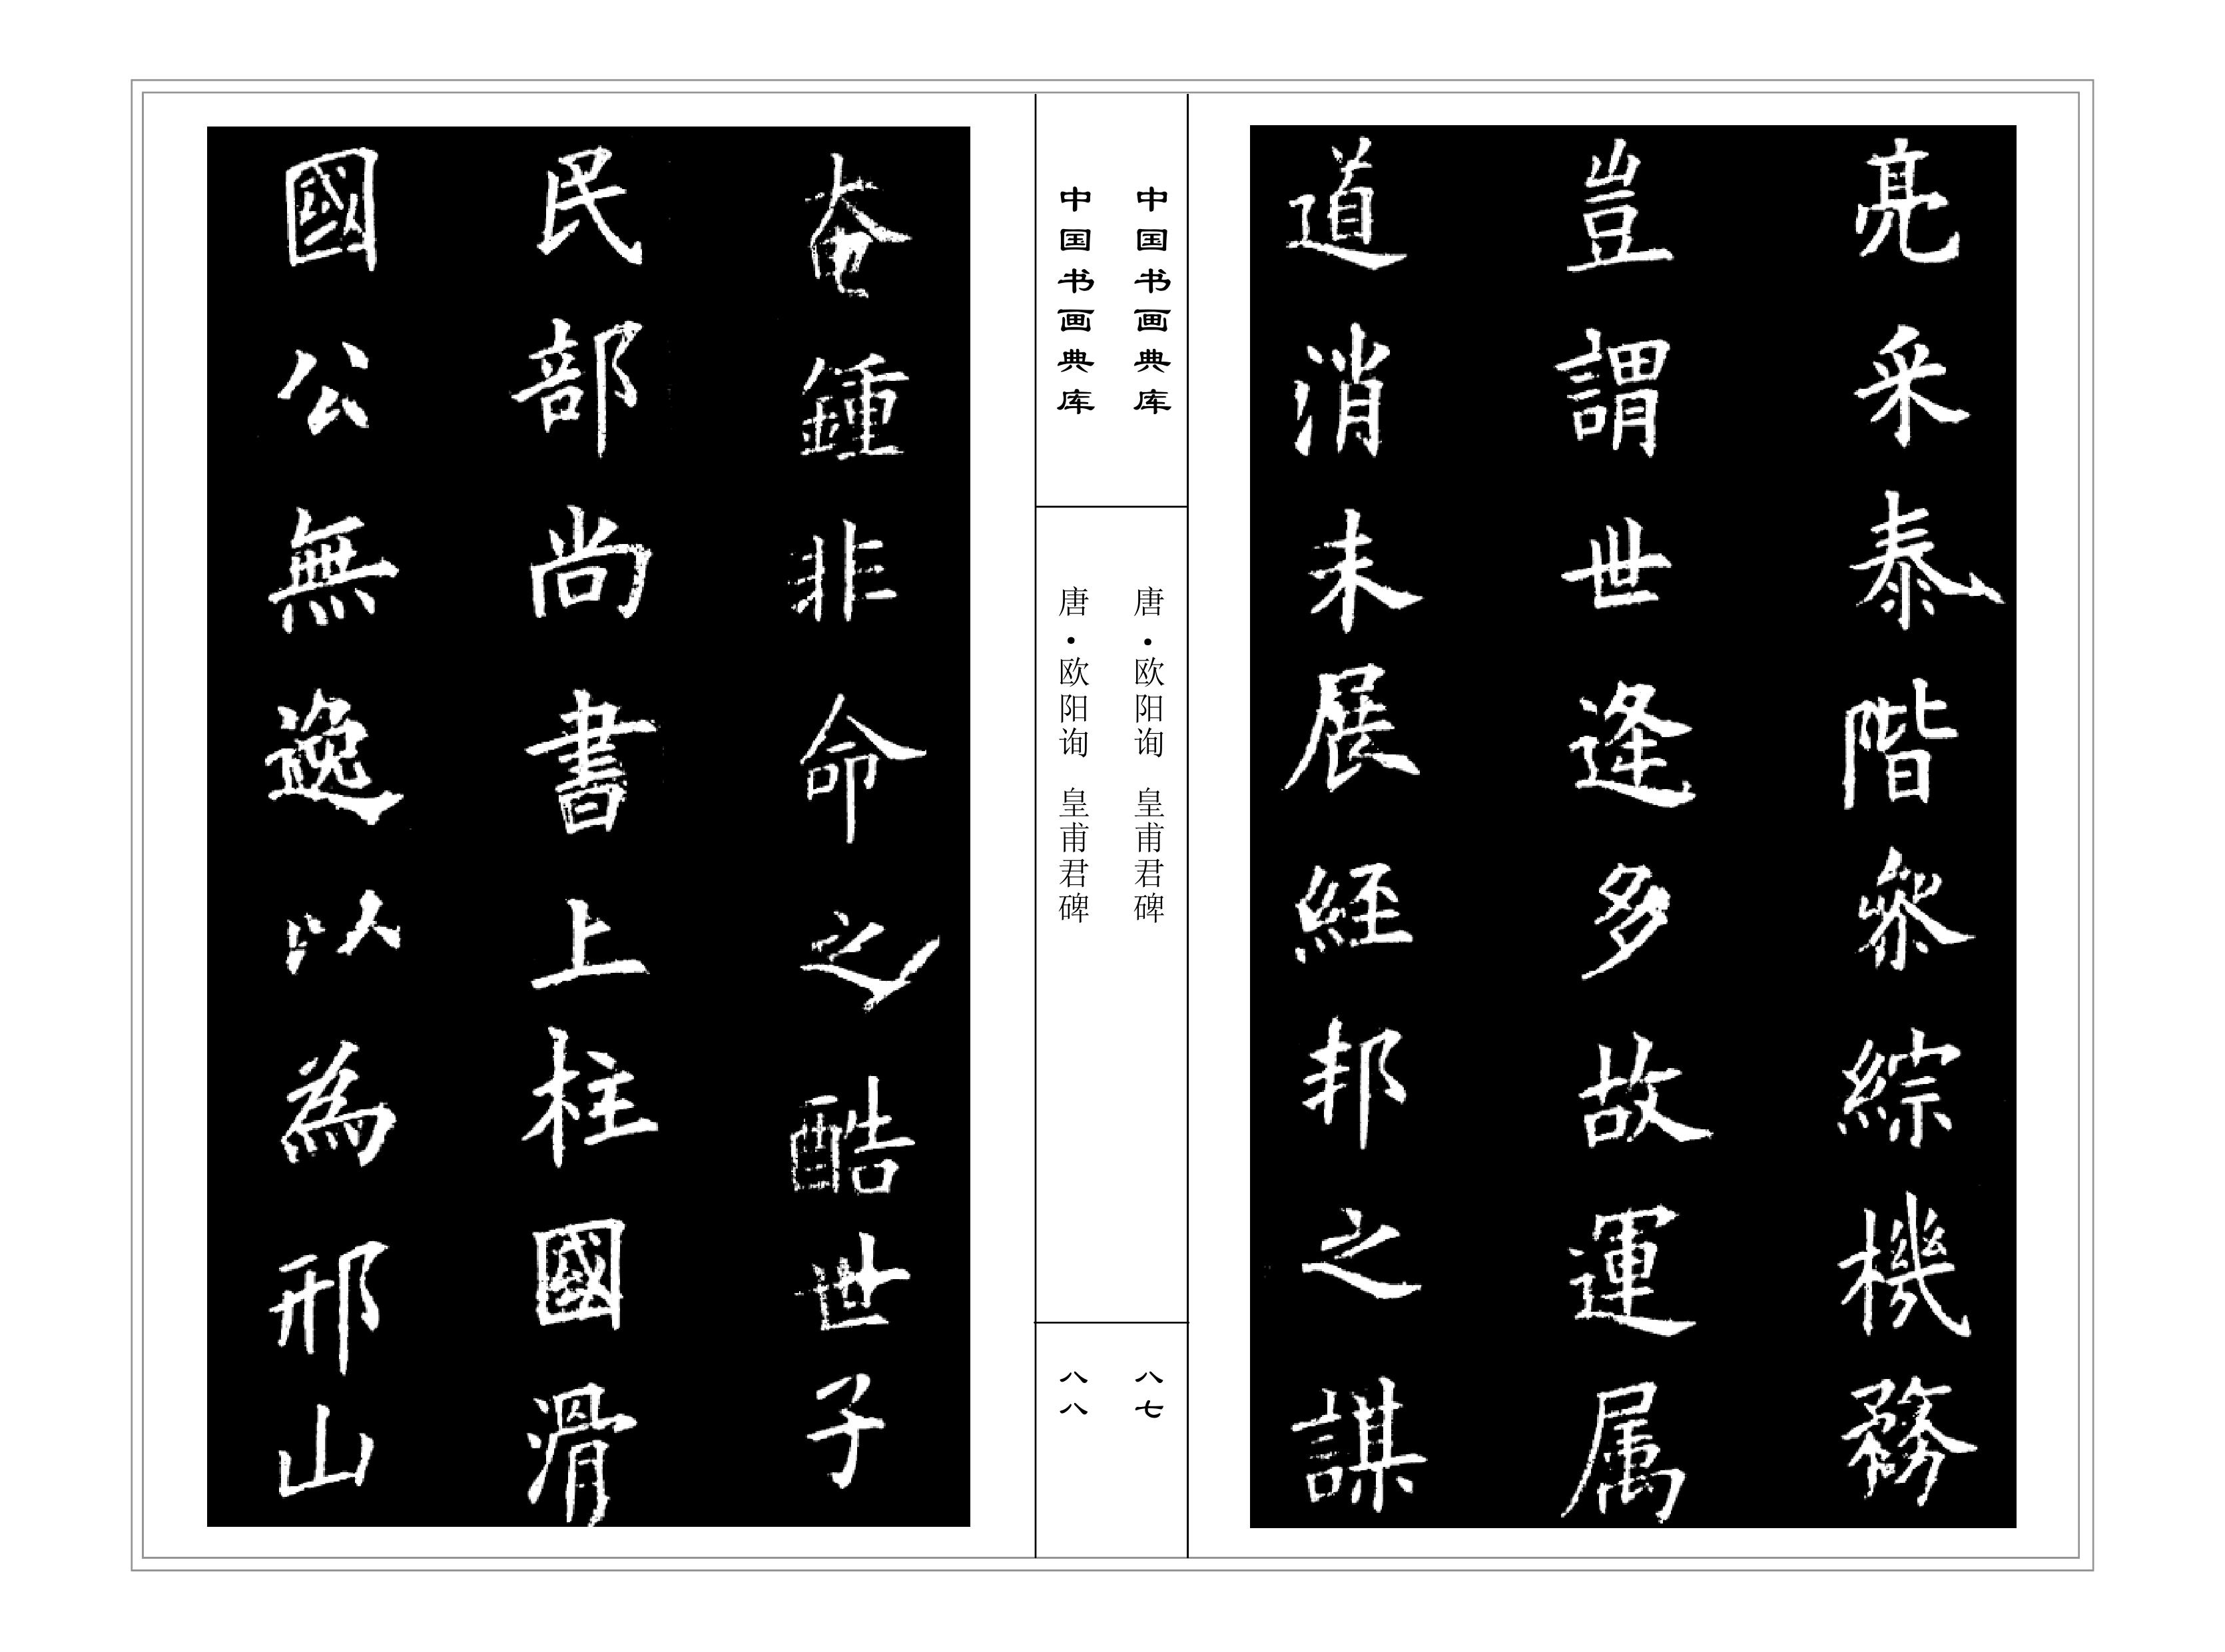 亮采泰階參綜機務
豈謂世逢多故運属
道消未展經邦之謀
中国书画典库
唐·欧阳询 皇甫君碑
八七
中国书画典库
唐·欧阳询 皇甫君碑
八八
奄鍾非命之酷世子
民部尚書上柱國滑
國公無逸以為邢山